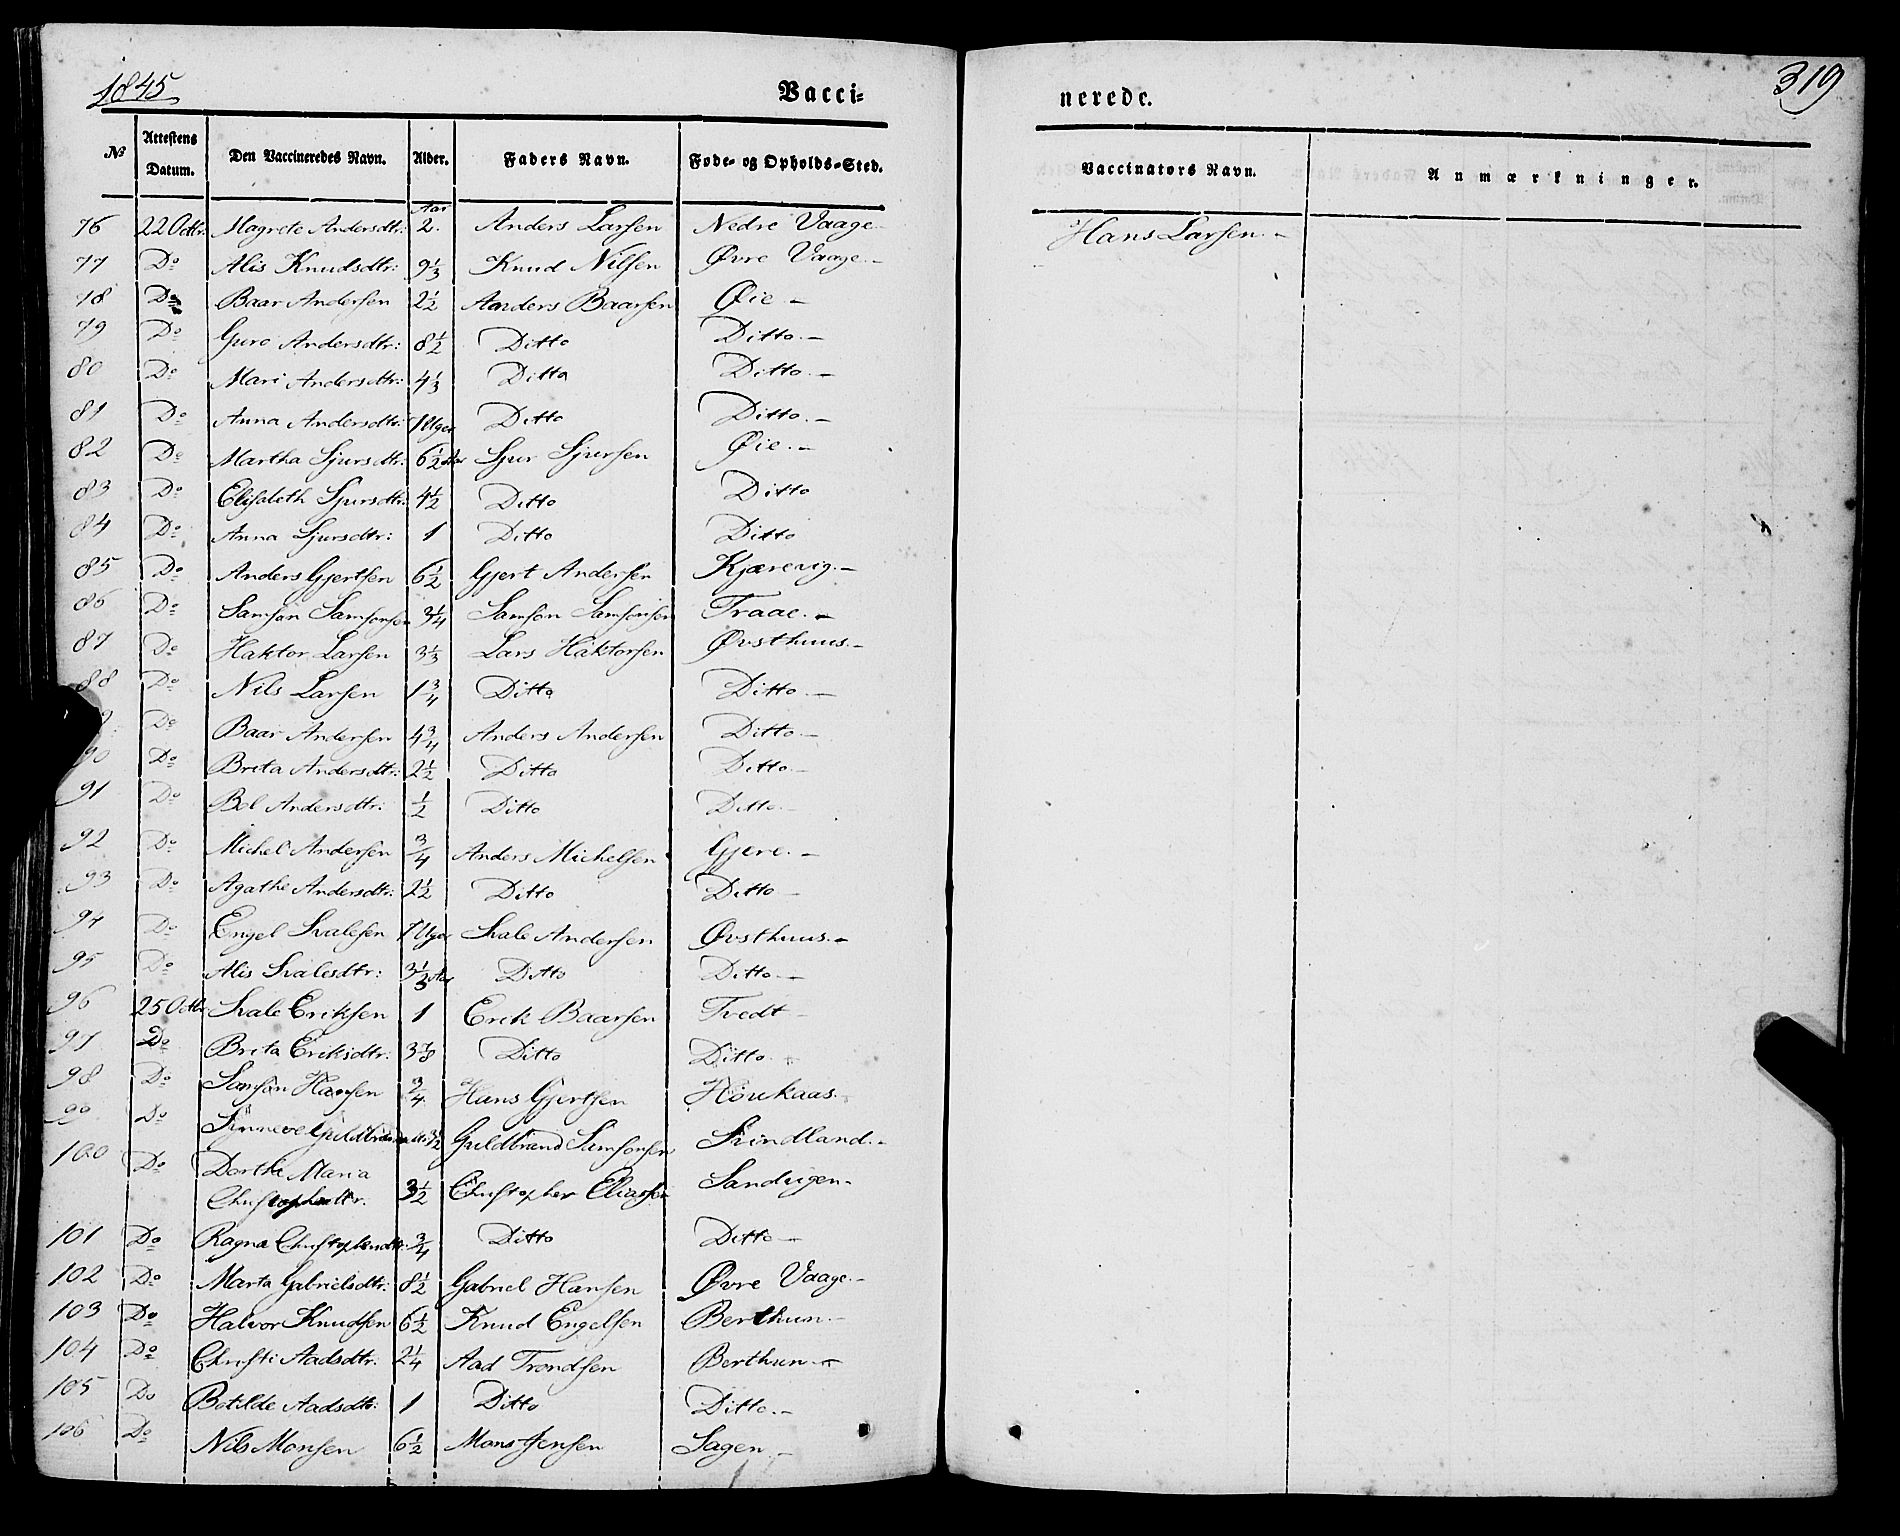 1845 Vacci- nerede. 319
№ Attestens Datum. Den Vaccineredes Navn. Alder. Faders Navn. Føde- og Opholds-Sted. Vaccinators Navn. Anmærkninger.
76 22 Octbr. Magrete Andersdtr: Aar 2. Anders Larsen Nedre Vaage Hans Larsen. –
77 Do Alis Knudsdtr: 9 1/3 Knud Nilsen Øvre Vaage. –
78 Do Baar Andersen 2 1/2 Anders Baarsen Øie –
79 Do Guro Andersdtr: 8 1/2 Ditto Ditto. –
80 Do Mari Andersdtr: 4 1/3 Ditto Ditto. –
81 Do Anna Andersdtr: 7 Uger Ditto Ditto. –
82 Do Martha Sjursdtr: 6 1/2 Aar Sjur Sjursen Øie. –
83 Do Elisabeth Sjursdtr: 4 1/2 Ditto Ditto
84 Do Anna Sjursdtr: 1 Ditto Ditto
85 Do Anders Gjertsen 6 1/2 Gjert Andersen Kjærevig. –
86 Do Samson Samsonsen 3/4 Samson Samsonsen Traae. –
87 Do Haktor Larsen 3 1/3 Lars Haktorsen Øvsthuus. –
88 Do Nils Larsen 1 3/4 Ditto Ditto. –
9 Do Baar Andersen 4 3/4 Anders Andersen Ditto. –
90 Do Brita Andersdtr: 2 1/2 Ditto Ditto. –
91 Do Bol Andersdtr: 1/2 Ditto Ditto. –
92 Do Michel Andersen 3/4 Anders Michelsen Gjere. –
93 Do Agathe Andersdtr: 2 1/2 Ditto Ditto –
94 Do Engel Svalesen 7 Uger Svale Andersen Øvsthuus. –
95 Do Alis Svalesdtr: 3 1/3 Aar Ditto Ditto. –
96 25 Octbr. Svale Eriksen 1 Erik Baarsen Tvedt –
97 Do Brita Eriksdtr: 3 7/8 Ditto Ditto.
98 Do Samson Hansen 3/4 Hans Gjertsen Höukaas.
99 Do Synneve 3 1/2 Guldbrand Samsonsen Svindland. –
100 Do Dorthe Maria
Christophersdtr. 3 1/2 Christopher Eliassen Sandvigen –
101 Do Ragna Christophersdtr: 3/4 Ditto Ditto –
102 Do Marta Gabrielsdtr: 8 1/2 Gabriel Hansen Øvre Vaage. –
103 Do Halvor Knudsen 6 1/2 Knud Engelsen Berthun. –
104 Do Christi Aadsdtr: 2 1/4 Aad Trondsen Berthun. –
105 Do Botilde Aadsdtr: 1 Ditto Ditto. –
106 Do Nils Monsen 6 1/2 Mons Jensen Sagen. –